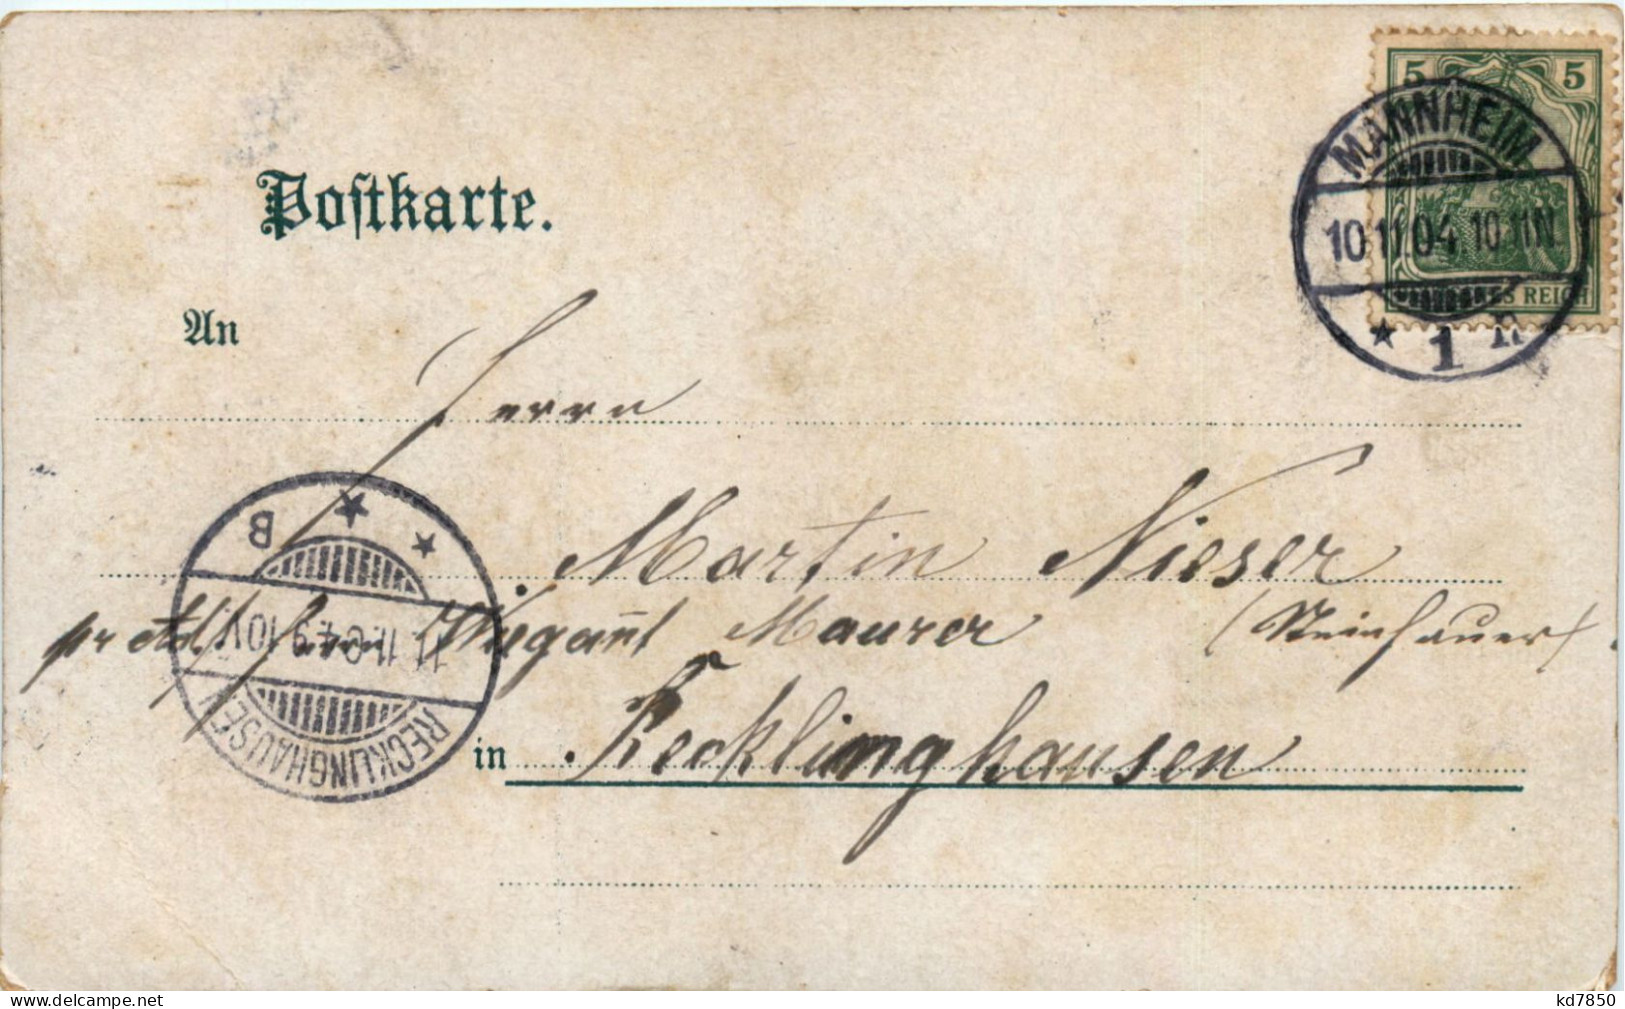 Postkarte.
An
5 5
MANNHEIM
10.11.04.10-11N.
* 1 n
REICH
Herrn
Martin Nieser
pr Adr. Herrn Wiegant Maurer (Steinhauer)
in Recklinghausen
RECKLINGHAUSEN
11.11.04.9-10V.
* B
www.delcampe.net
kd7850